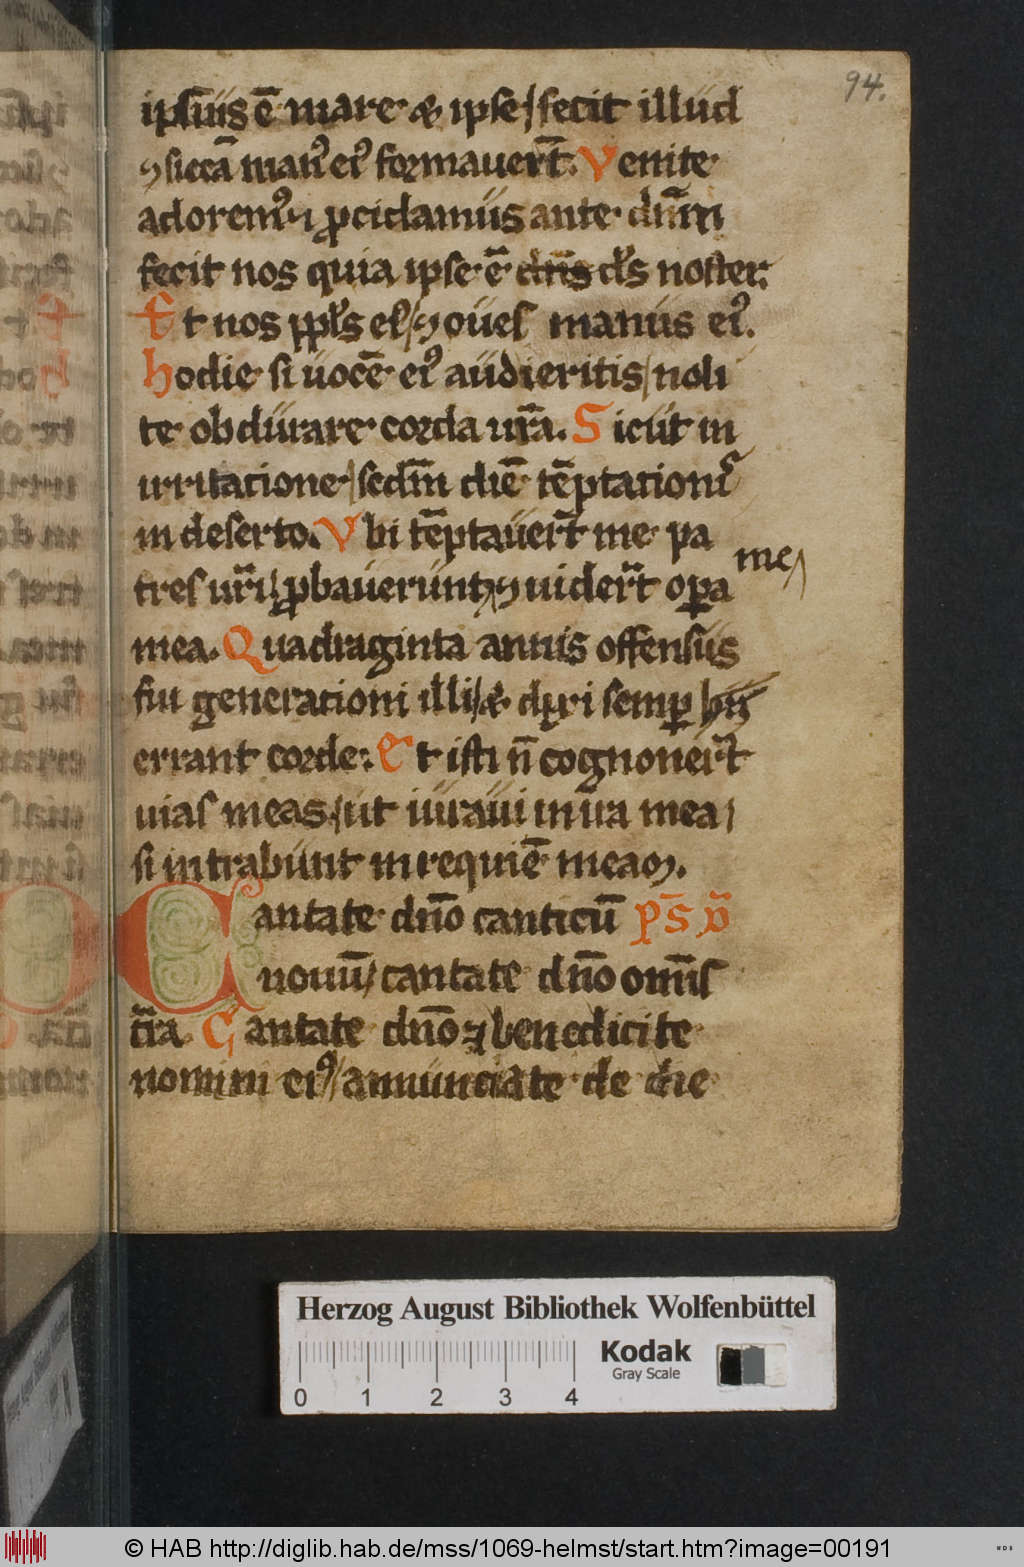 94.
ipsiús ē mare & ipse / fecit illúd
⁊ siccā man᷒ ei᷒ formauer̄t. Venite
adorem᷒ ⁊ ꝓcidamús ante dn̄m
fecit nos quia ipse ē dn̄s ds̄ noster.
Et nos ppl̄s ei᷒ / ⁊ oúes manús ei᷒.
hodie si úocē ei᷒ aúdieritis / noli
te obdúrare corda ur̄a. Sicút in
irritatione / sedm̄ diē tēptationis
in deserto. Vbi tēptaúer̄t me pa
tres ur̄i / ꝓbaúerúnt ⁊ uider̄t oꝑa
me /
mea. Quadraginta annis offensús
fui generationi illi / & dixi semꝑ hii
errant corde. Et isti n̄ cognoner̄t
uias meas / út iúraúi in ira mea /
si intrabúnt in requiē meam.
Cantate dn̄o canticū ps̄ d̄d
nouū / cantate dn̄o omīs
tr̄ra. Cantate dn̄o ⁊ benedicite
nomini ei᷒ / annúnciate de die
Herzog August Bibliothek Wolfenbüttel
Kodak
Gray Scale
0 1 2 3 4
© HAB http://diglib.hab.de/mss/1069-helmst/start.htm?image=00191